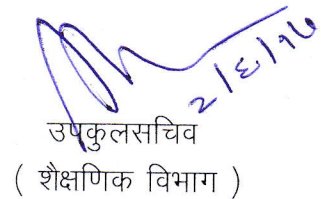 २/६/१७
उपकुलसचिव
( शैक्षणिक विभाग )